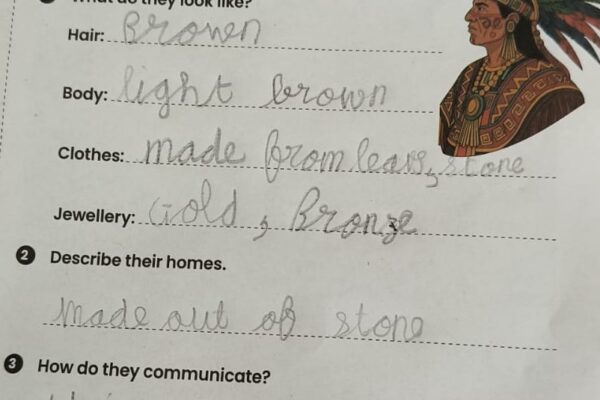 What do they look like?
Hair: Brown
Body: light brown
Clothes: made from leavs, stone
Jewellery: Gold, Bronze
2 Describe their homes.
made out of stone
3 How do they communicate?